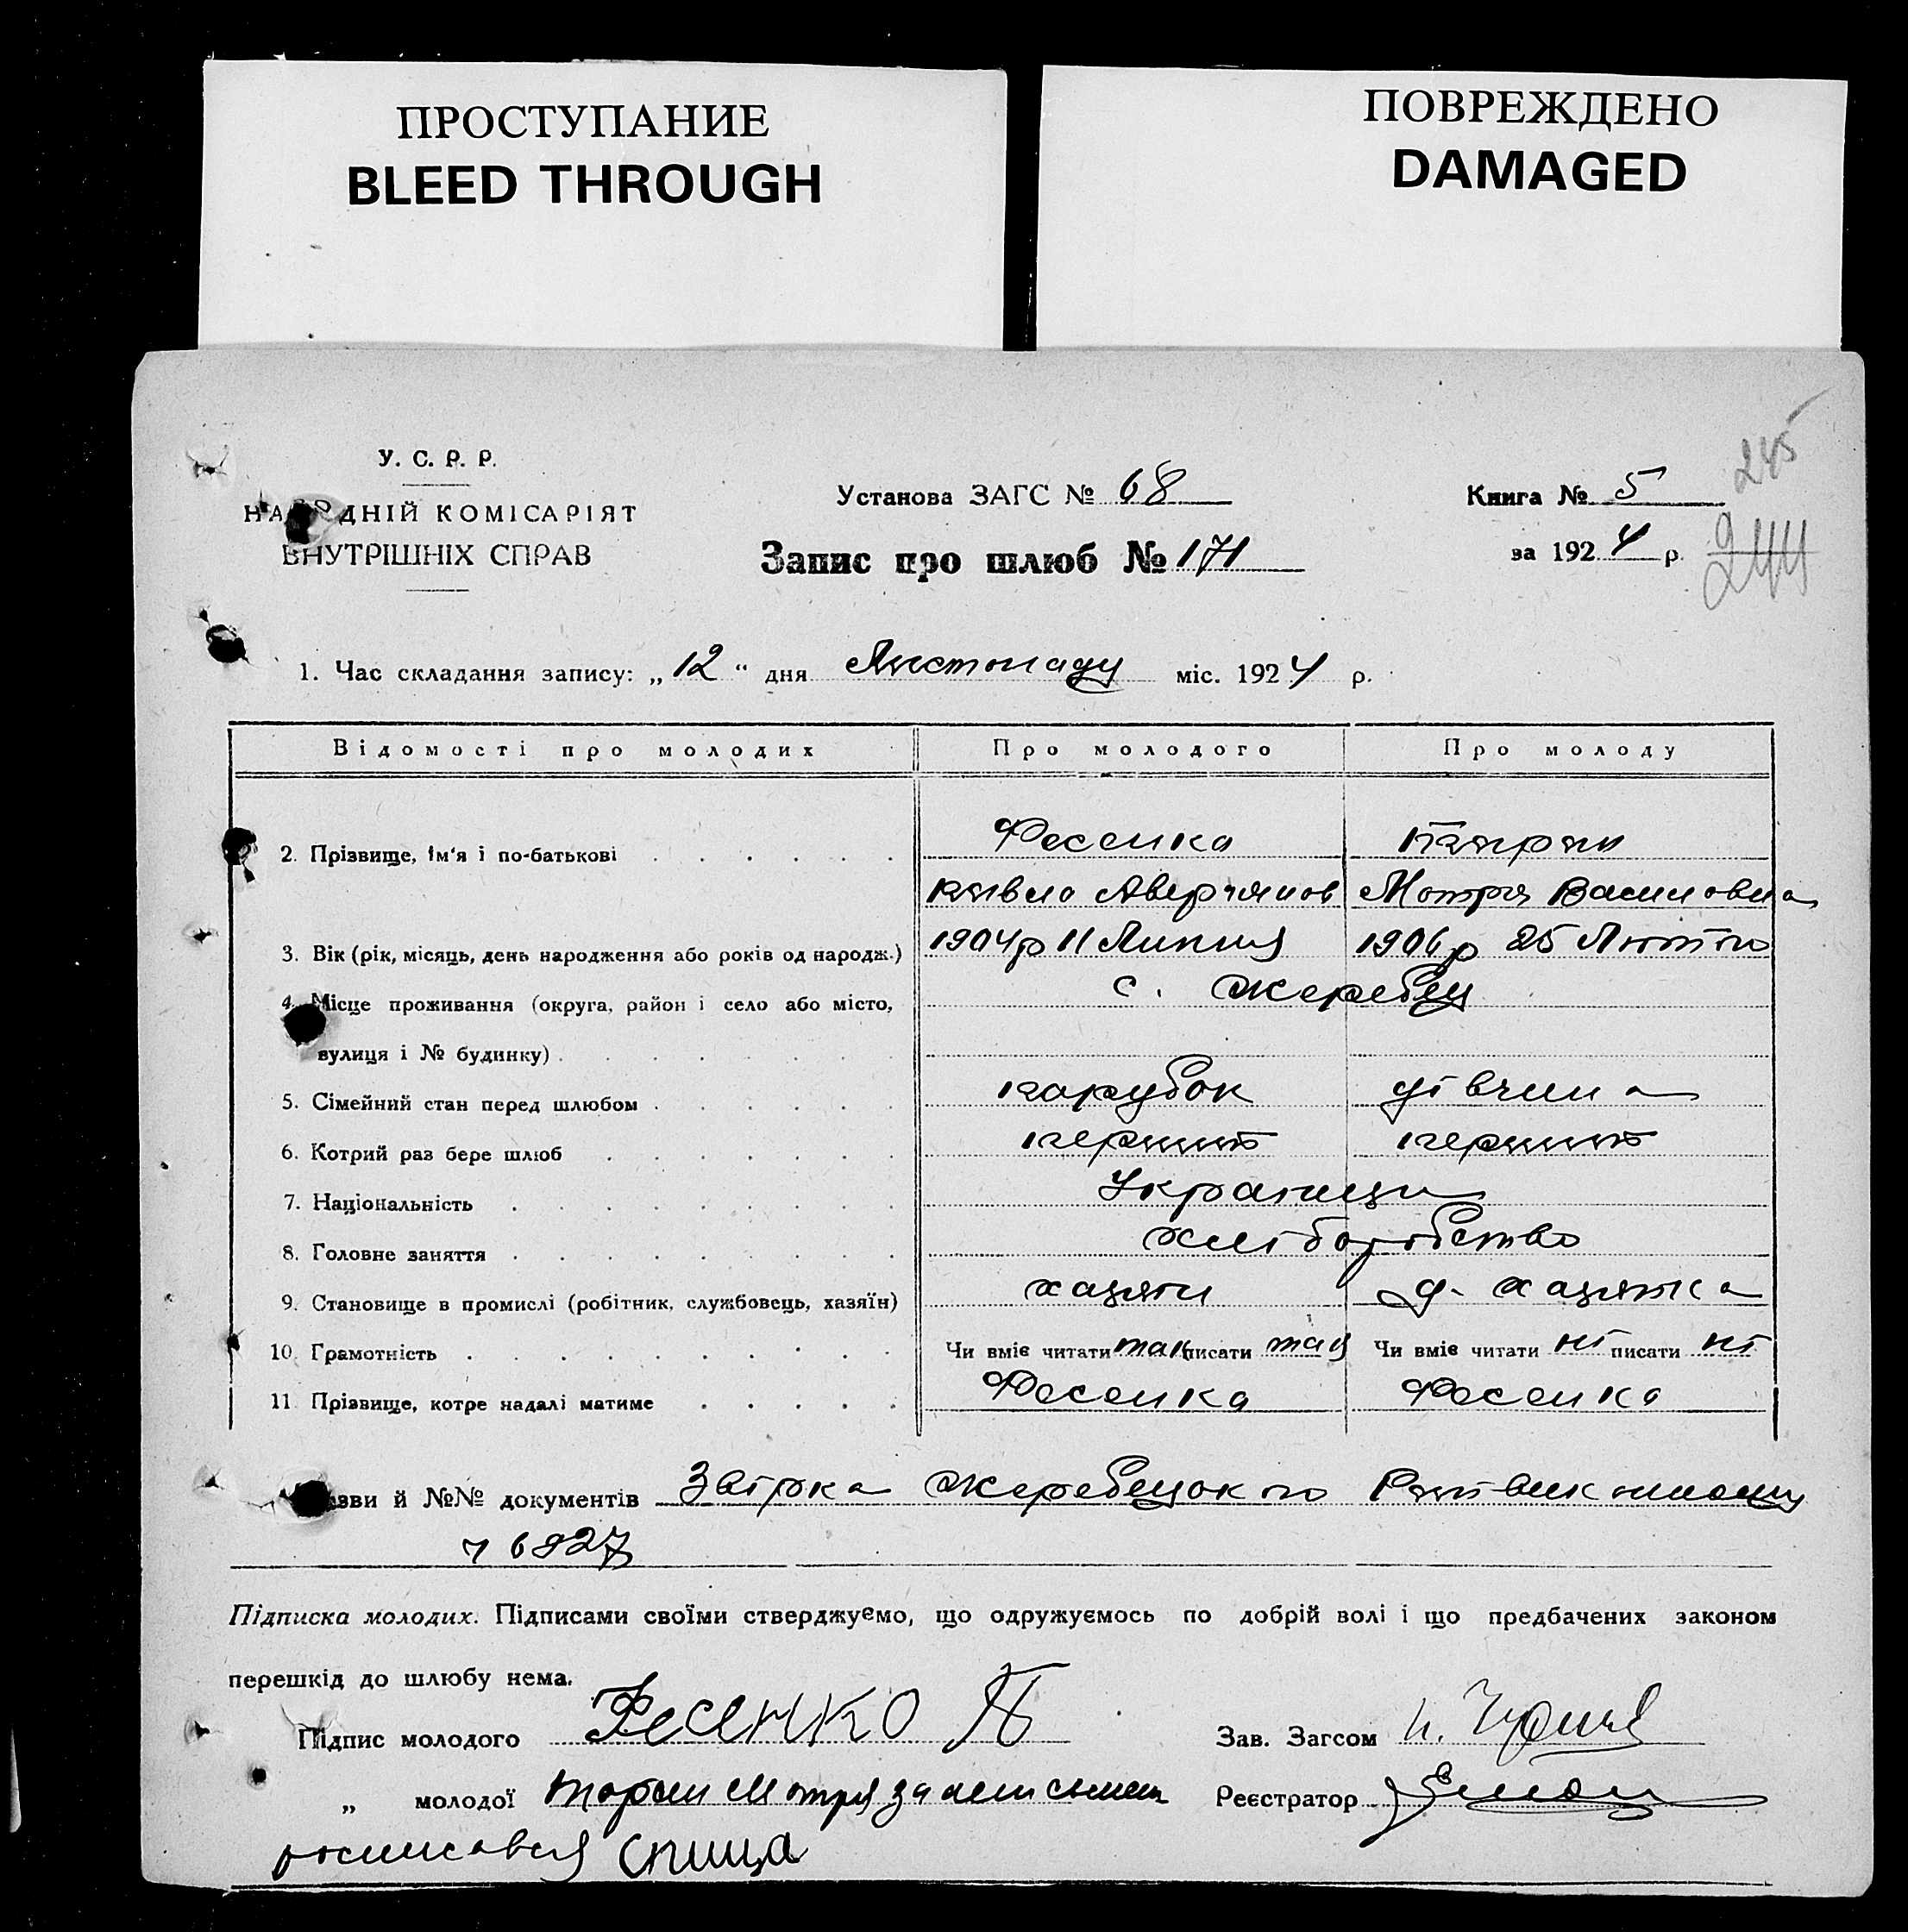 ПРОСТУПАНИЕ
BLEED THROUGH
ПОВРЕЖДЕНО
DAMAGED
245
244
У. С. Р. Р.
НАРОДНІЙ КОМІСАРІЯТ
ВНУТРІШНІХ СПРАВ
Установа ЗАГС № 68
Запис про шлюб № 171
Книга № 5
за 1924 р.
1. Час складання запису: „12“ дня Листопаду міс. 1924 р.
Відомості про молодих Про молодого Про молоду
2. Прізвище, ім'я і по-батькові Фесенко
Павло Аверянов Мотря Василовна
3. Вік (рік, місяць, день народження або років од народж.) 1904р 11 Липня 1906р 25 Лютого
4. Місце проживання (округа, район і село або місто, с. Жеребец
вулиця і № будинку)
5. Сімейний стан перед шлюбом парубок дівчина
6. Котрий раз бере шлюб перший перший
7. Національність Украпнци
8. Головне заняття хліборобство
9. Становище в промислі (робітник, службовець, хазяїн) хазяін д. хазяіка
10. Грамотність Чи вміє читати так писати так Чи вміє читати ні писати ні
11. Прізвище, котре надалі матиме Фесенко Фесенко
зви й №№ документів Звірка Жеребецького Райвиконкому
ч 6827
Підписка молодих. Підписами своїми стверджуємо, що одружуємось по добрій волі і що предбачених законом
перешкід до шлюбу нема.
Підпис молодого Фесенко П
Зав. Загсом
„ молодої Мотря за неписьмен
Реєстратор
росписався Спица